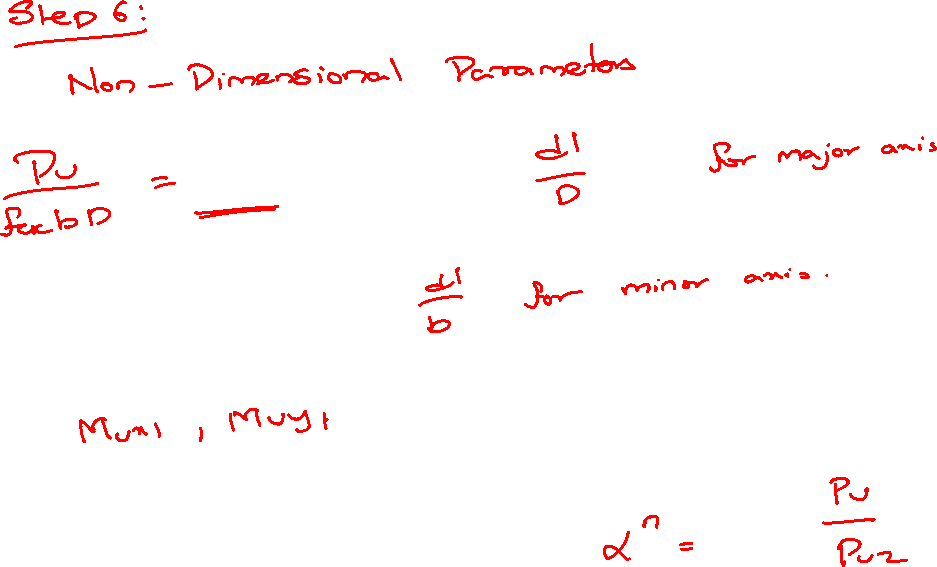 Step 6:
Non - Dimensional Parameters
Pu / fck b D = ___
d' / D for major axis
d' / b for minor axis.
Mux1 , Muy1
α^n = Pu / Puz